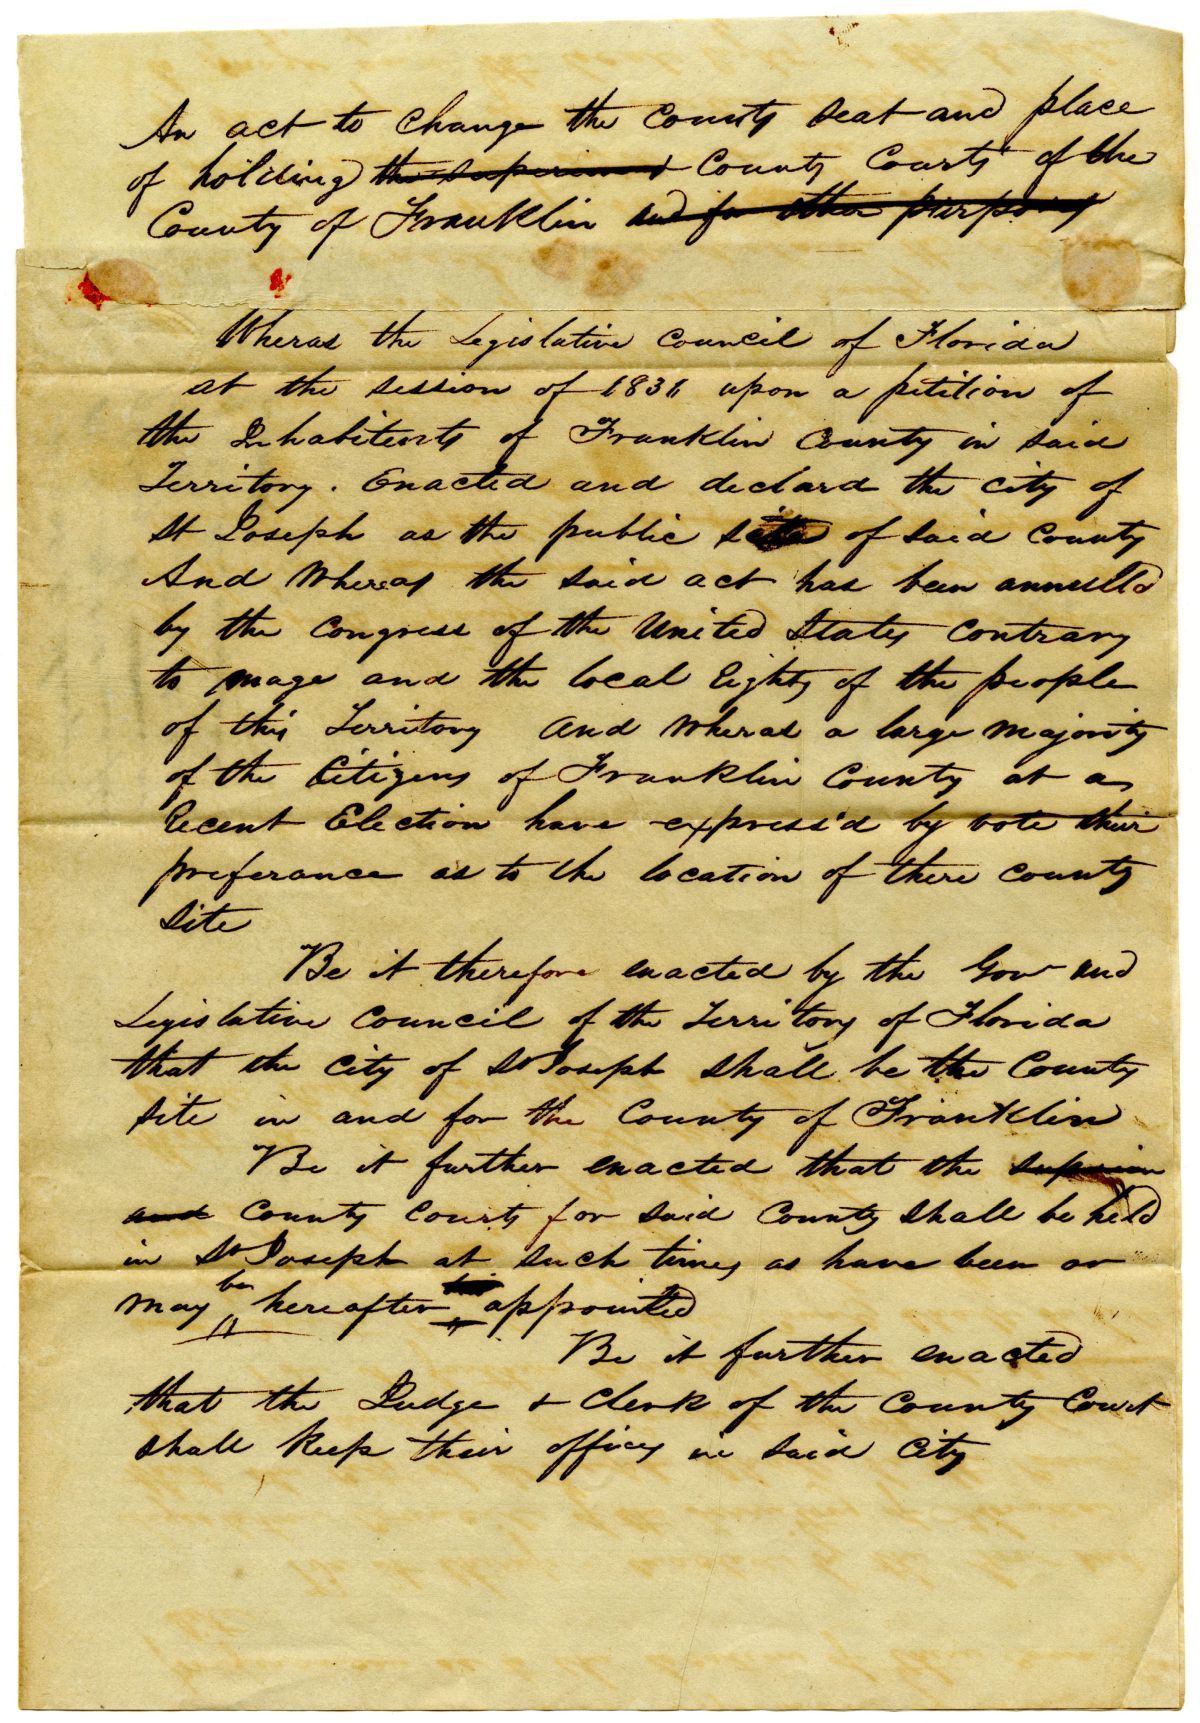 An act to change the County seat and place
of holding the superior and County Courts of the
County of Franklin and for other purposes
Wheras the Legislative Council of Florida
at the session of 1836 upon a petition of
the Inhabitents of Franklin County in said
Territory. Enacted and declard the city of
St Joseph as the public site of said County
And Whereas the said act has been annulld
by the Congress of the United States contrary
to usage and the local rights of the people
of this Territory And Wheras a large majority
of the Citizens of Franklin County at a
recent Election have express'd by vote their
preferance as to the location of there county
site
Be it therefore enacted by the Govr and
Legislative Council of the Territory of Florida
that the City of St Joseph shall be the County
site in and for the County of Franklin
Be it further enacted that the superior
and County Courts for said County shall be held
in St Joseph at such times as have been or
may be hereafter appointed
Be it further enacted
that the Judge & Clerk of the County Court
shall keep their offices in said City